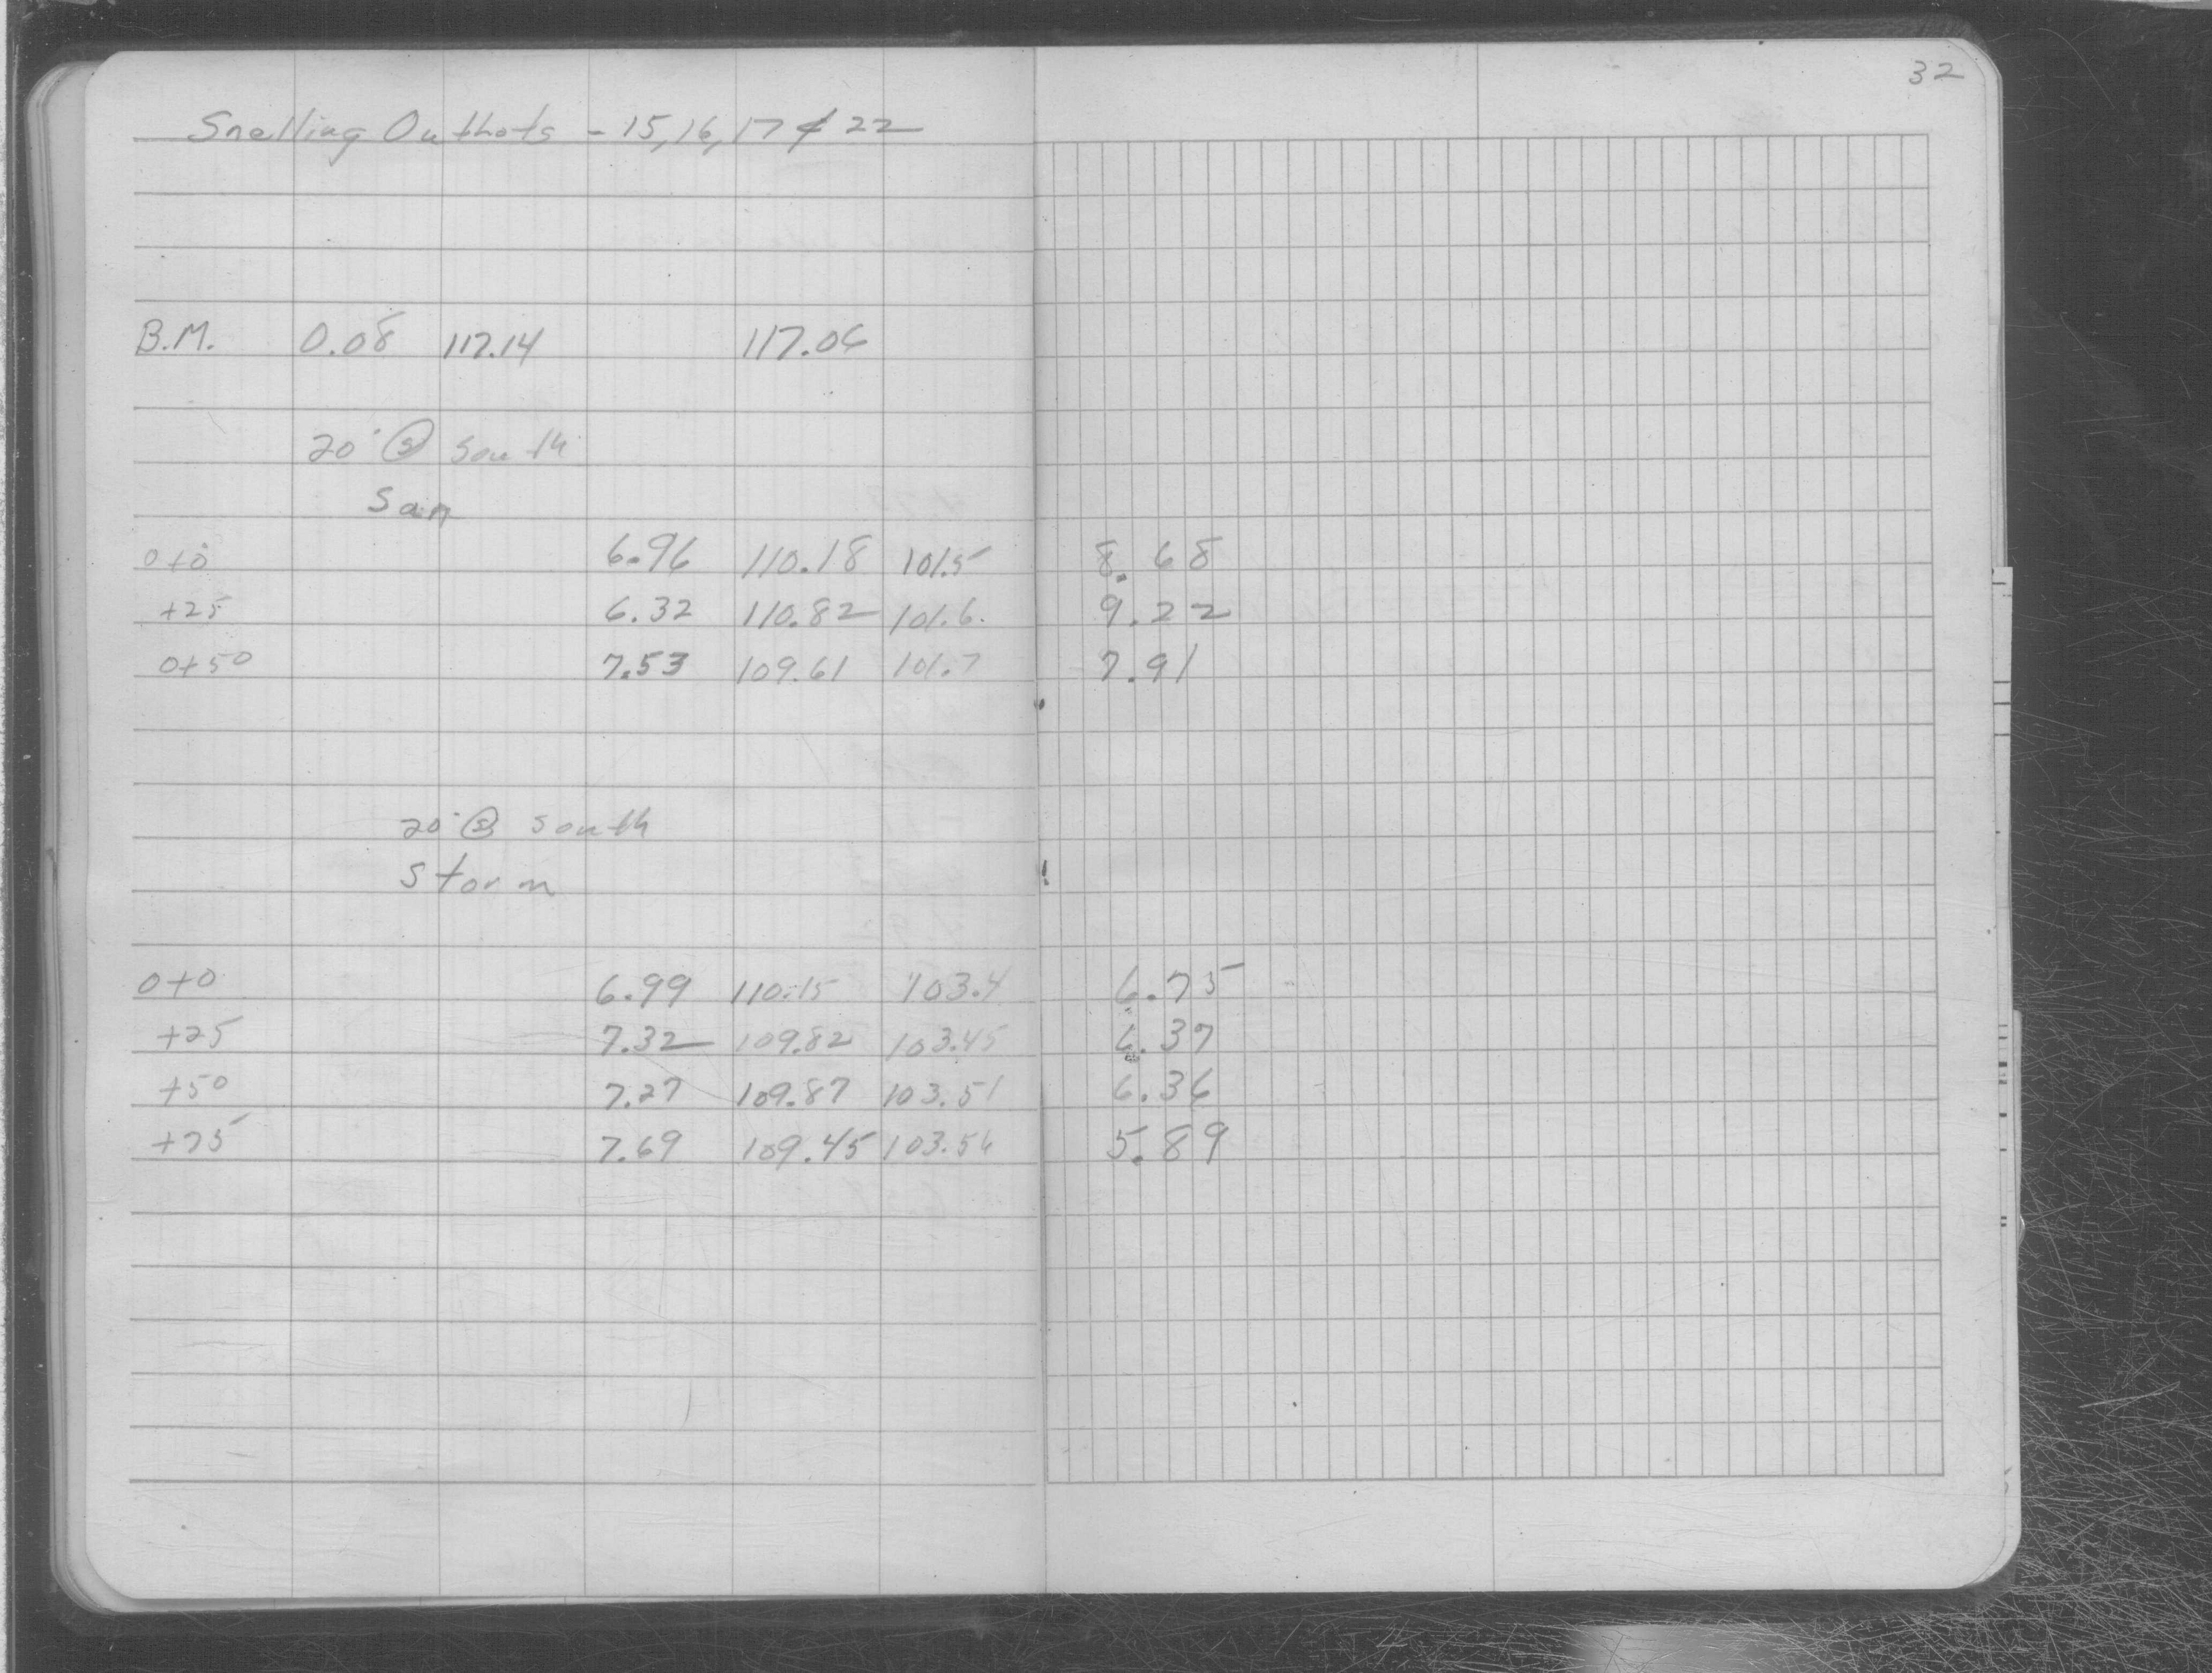 32
Snelling Outlots - 15, 16, 17 & 22
B.M. 0.08 117.14 117.06
20' Ⓢ South
San
0+0 6.96 110.18 101.5 8.68
+25 6.32 110.82 101.6. 9.22
0+50 7.53 109.61 101.7 7.91
20' Ⓢ South
Storm
0+0 6.99 110.15 103.4 6.75
+25 7.32 109.82 103.45 6.37
+50 7.27 109.87 103.51 6.36
+75 7.69 109.45 103.56 5.89